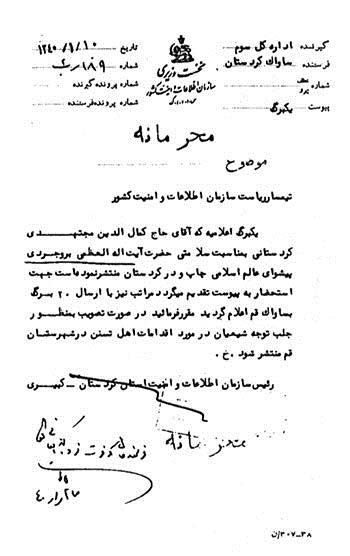 گیرنده اداره کل سوم
فرستنده ساواک کردستان
شماره
پیوست یکبرگ
نخست وزیری
سازمان اطلاعات و امنیت کشور
س.ا.و.ا.ک
تاریخ ۱۳۴۰/۱/۱۰
شماره ۱۸۹
شماره پرونده گیرنده
شماره پرونده فرستنده
محرمانه
موضوع
تیمسار ریاست سازمان اطلاعات و امنیت کشور
یکبرگ اعلامیه که آقای حاج کمال الدین مجتهدی
کردستانی بمناسبت سلامتی حضرت آیت اله العظمی بروجردی
پیشوای عالم اسلامی چاپ و در کردستان منتشر نموده است جهت
استحضار به پیوست تقدیم میگردد مراتب نیز با ارسال ۲۰ برگ
بساواک قم اعلام گردید مقرر فرمائید در صورت تصویب بمنظور
جلب توجه شیعیان در مورد اقدامات اهل تسنن در شهرستان
قم منتشر شود . خ
رئیس سازمان اطلاعات و امنیت استان کردستان ــ کبیری
محرمانه
۳۰۷ــ۳۸/ن